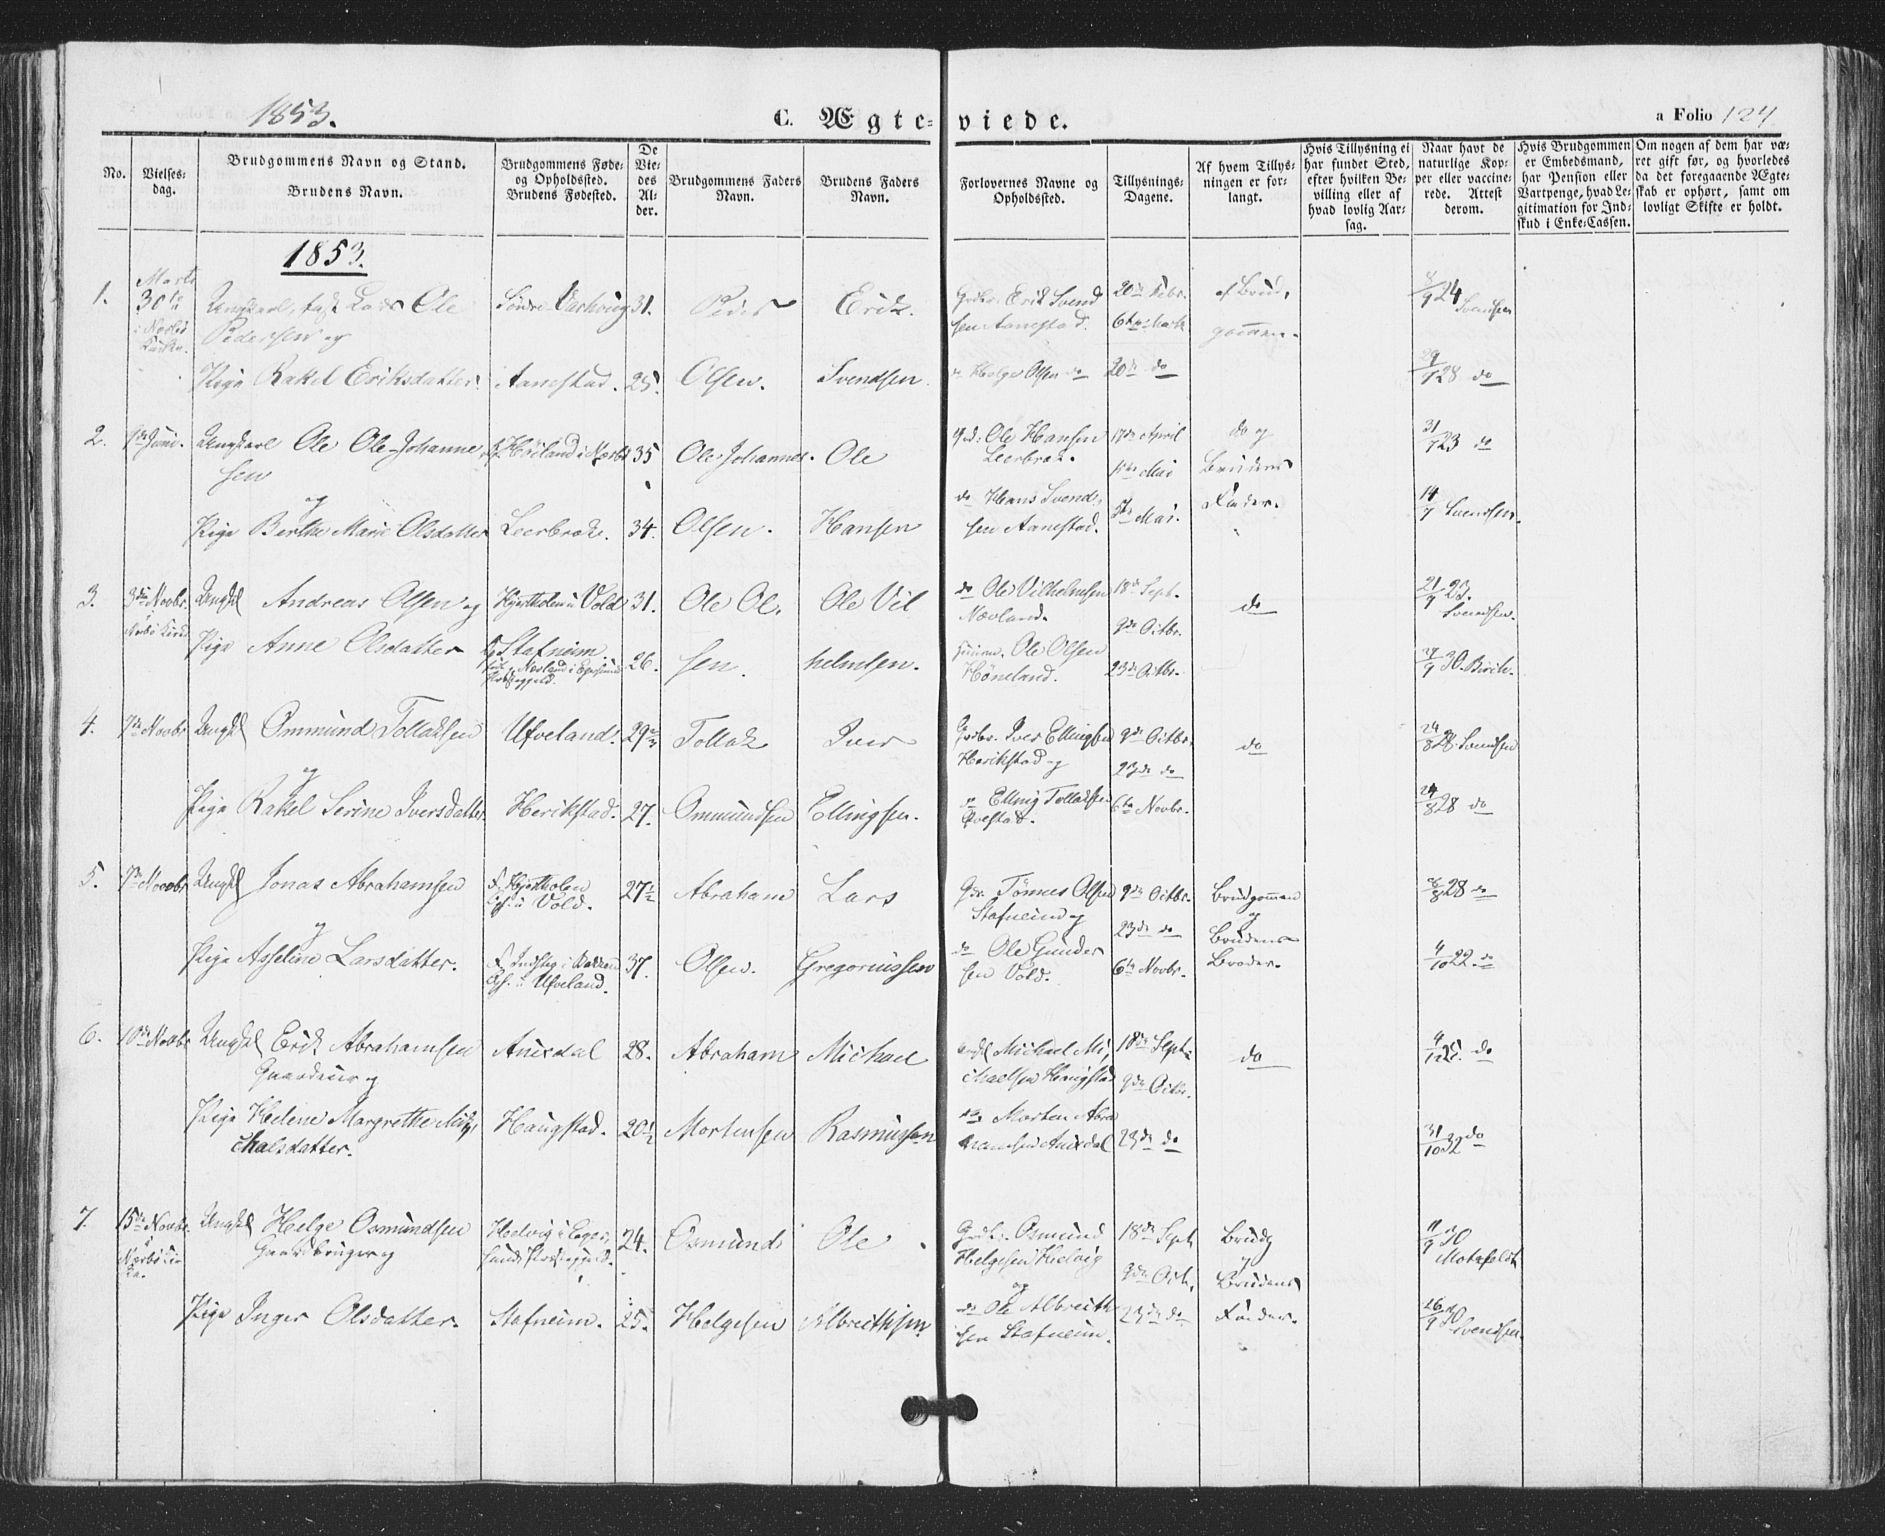 1853.
C. Ægte-viede.
a Folio 124
No.
Vielses-
dag.
Brudgommens Navn og Stand.
Brudens Navn.
Brudgommens Føde-
og Opholdssted.
Brudens Fødested.
De
Vie-
des
Al-
der.
Brudgommens Faders
Navn.
Brudens Faders
Navn.
Forlovernes Navne og
Opholdssted.
Tillysnings-
Dagene.
Af hvem Tillys-
ningen er for-
langt.
Hvis Tillysning ei
har fundet Sted,
efter hvilken Be-
villing eller af
hvad lovlig Aar-
sag.
Naar havt de
naturlige Kop-
per eller vaccine-
rede. Attest
derom.
Hvis Brudgommen
er Embedsmand,
har Pension eller
Vartpenge, hvad Le-
gitimation for Ind-
skud i Enke-Cassen.
Om nogen af dem har væ-
ret gift før, og hvorledes
da det foregaaende Ægte-
skab er ophørt, samt om
lovligt Skifte er holdt.
1853.
1. Marts 30te
Ungkarl, Ole
Pedersen og
Søndre Varhoug 31. Peder Erik.
Grdbr. Erik Svend
sen Aanestad.
20de Febr.
6te Marts
af Brud,
gommen.
24 Svendsen
Pige Rakel Eriksdatter. Aanestad. 25. Olsen. Svendsen.
Helge Olsen do 20de do 28 do
2. 1ste Juni. Ungkarl Ole Ole Johanne
sen
og
35 Ole Johannes. Ole
Ole Hansen
Leerbrek.
17de April
1ste Mai
do og
Brudens
Fader.
31/7 23 do
Pige Berthe Marie Olsdatter Leerbrek. 34. Olsen. Hansen
do Hans Svend-
sen Aanestad.
5te Mai.
14/7 Svendsen.
3. 3die Novbr. Ungkl Andreas Olsen og Hjertholen u Vold 31. Ole Ol. Ole Vil
do Ole Vilhelmsen
Nævland.
18de Sept.
9de Octbr.
do
21/9 23.
Svendsen.
Pige Anne Olsdatter
F. Stafneim.
26. sen. helmsen.
Ole Olsen
Høneland.
23de Octbr.
30. Birch.
4. 7de Novbr Ungkl Ommund Tollaksen Ufveland. 29 Tollak Iver
og
Grdbr. Iver Ellingsen
Herikstad og
9de Octbr.
23de do
do
24/8 28. Svendsen
Pige Rakel Serine Iversdatter Herikstad. 27. Ommundsen Ellingsen.
do Elling Tollaksen
6te Novbr.
24/8 28 do
5. 7de Novbr Ungkl Jonas Abrahamsen
og
F. Hjertholen
Oph. u Vold.
27½ Abraham Lars
Tønnes Olsen
Stafneim og
9de Octbr.
23de do
Brudgommen
og
Brudens
Broder.
28 do
Pige Asseline Larsdatter.
Oph. u Ufveland.
37. Olsen. Gregoriussen
do Ole Gunder
sen Vold.
6te Novbr.
4/10 22. do
6. 10de Novbr Ungkl Erik Abrahamsen
Gaardeier og
Auesdal 28. Abraham Michael
Michael Mi,
chaelsen Haugstad
18de Sept.
9de Octbr.
do
do
Pige Helene Margrethe Mi,
chalsdatter.
Haugstad. 20½ Mortensen Rasmussen
do Morten Abra
hamsen Auesdal
23de do
31/10 32 do
7. 15de Novbr
i
Ungkl Helge Osmundsen
Gaardbruger og
24. Osmund Ole
Grdbr. Osmund
Helgesen Helvig
og
18de Sept
9de Oct.
Brudg
og
Brudens
Fader.
11/9 30
Motzfeldt
Pige Inger Olsdatter. Stafneim. 25. Helgesen Albreithsen
do Ole Albreith
sen Stafneim.
23de do
26/9 30
Svendsen.